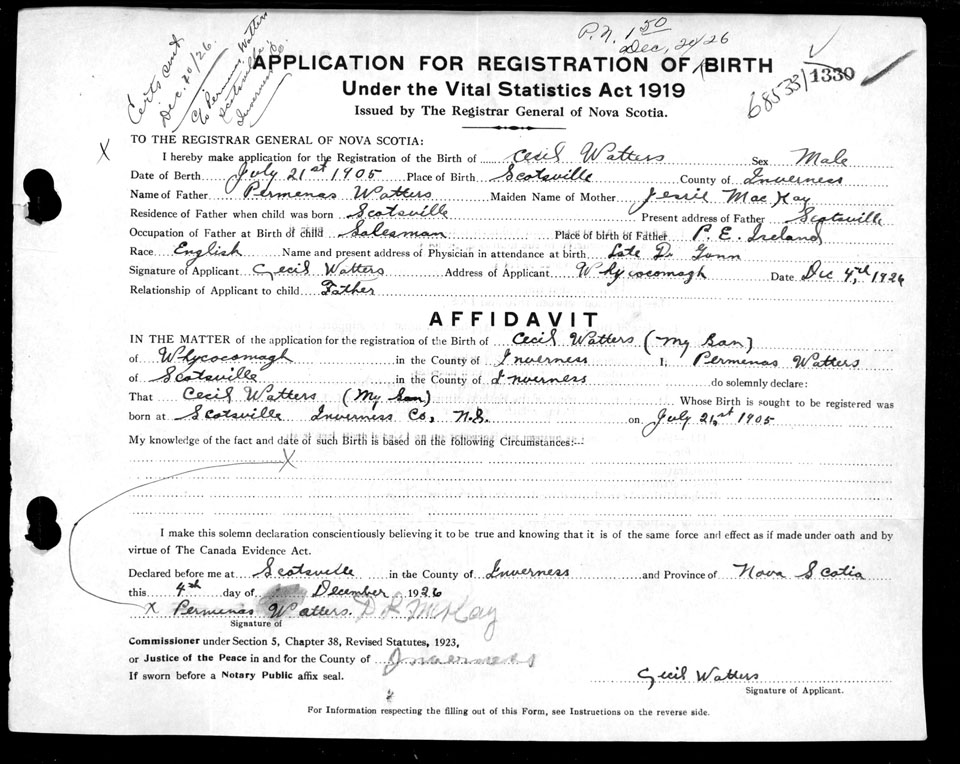 P.N. 1 50
Dec, 24/26
Certs sent
Dec. 20/26.
c/o Permenas Watters
Scotsville
Inverness Co.
68533/ 1330
APPLICATION FOR REGISTRATION OF BIRTH
Under the Vital Statistics Act 1919
Issued by The Registrar General of Nova Scotia.
TO THE REGISTRAR GENERAL OF NOVA SCOTIA:
X
I hereby make application for the Registration of the Birth of Cecil Watters Sex Male
Date of Birth July 21st 1905 Place of Birth Scotsville County of Inverness
Name of Father Permenas Watters Maiden Name of Mother Jessie MacKay
Residence of Father when child was born Scotsville Present address of Father Scotsville
Occupation of Father at Birth of child Salesman Place of birth of Father P. E. Island
Race English Name and present address of Physician in attendance at birth Late Dr Gunn
Signature of Applicant Cecil Watters Address of Applicant Whycocomagh Date Dec 4th, 1926
Relationship of Applicant to child Father
AFFIDAVIT
IN THE MATTER of the application for the registration of the Birth of Cecil Watters (My Son)
of Whycocomagh in the County of Inverness I; Permenas Watters
of Scotsville in the County of Inverness do solemnly declare:
That Cecil Watters (My Son) Whose Birth is sought to be registered was
born at Scotsville Inverness Co, N.S. on July 21st 1905
My knowledge of the fact and date of such Birth is based on the following Circumstances:
X
I make this solemn declaration conscientiously believing it to be true and knowing that it is of the same force and effect as if made under oath and by
virtue of The Canada Evidence Act.
Declared before me at Scotsville in the County of Inverness and Province of Nova Scotia
this 4th day of December 1926
X Permenas Watters. D R McKay
Signature of
Commissioner under Section 5, Chapter 38, Revised Statutes, 1923,
or Justice of the Peace in and for the County of Inverness
If sworn before a Notary Public affix seal.
Cecil Watters
Signature of Applicant.
For Information respecting the filling out of this Form, see Instructions on the reverse side.